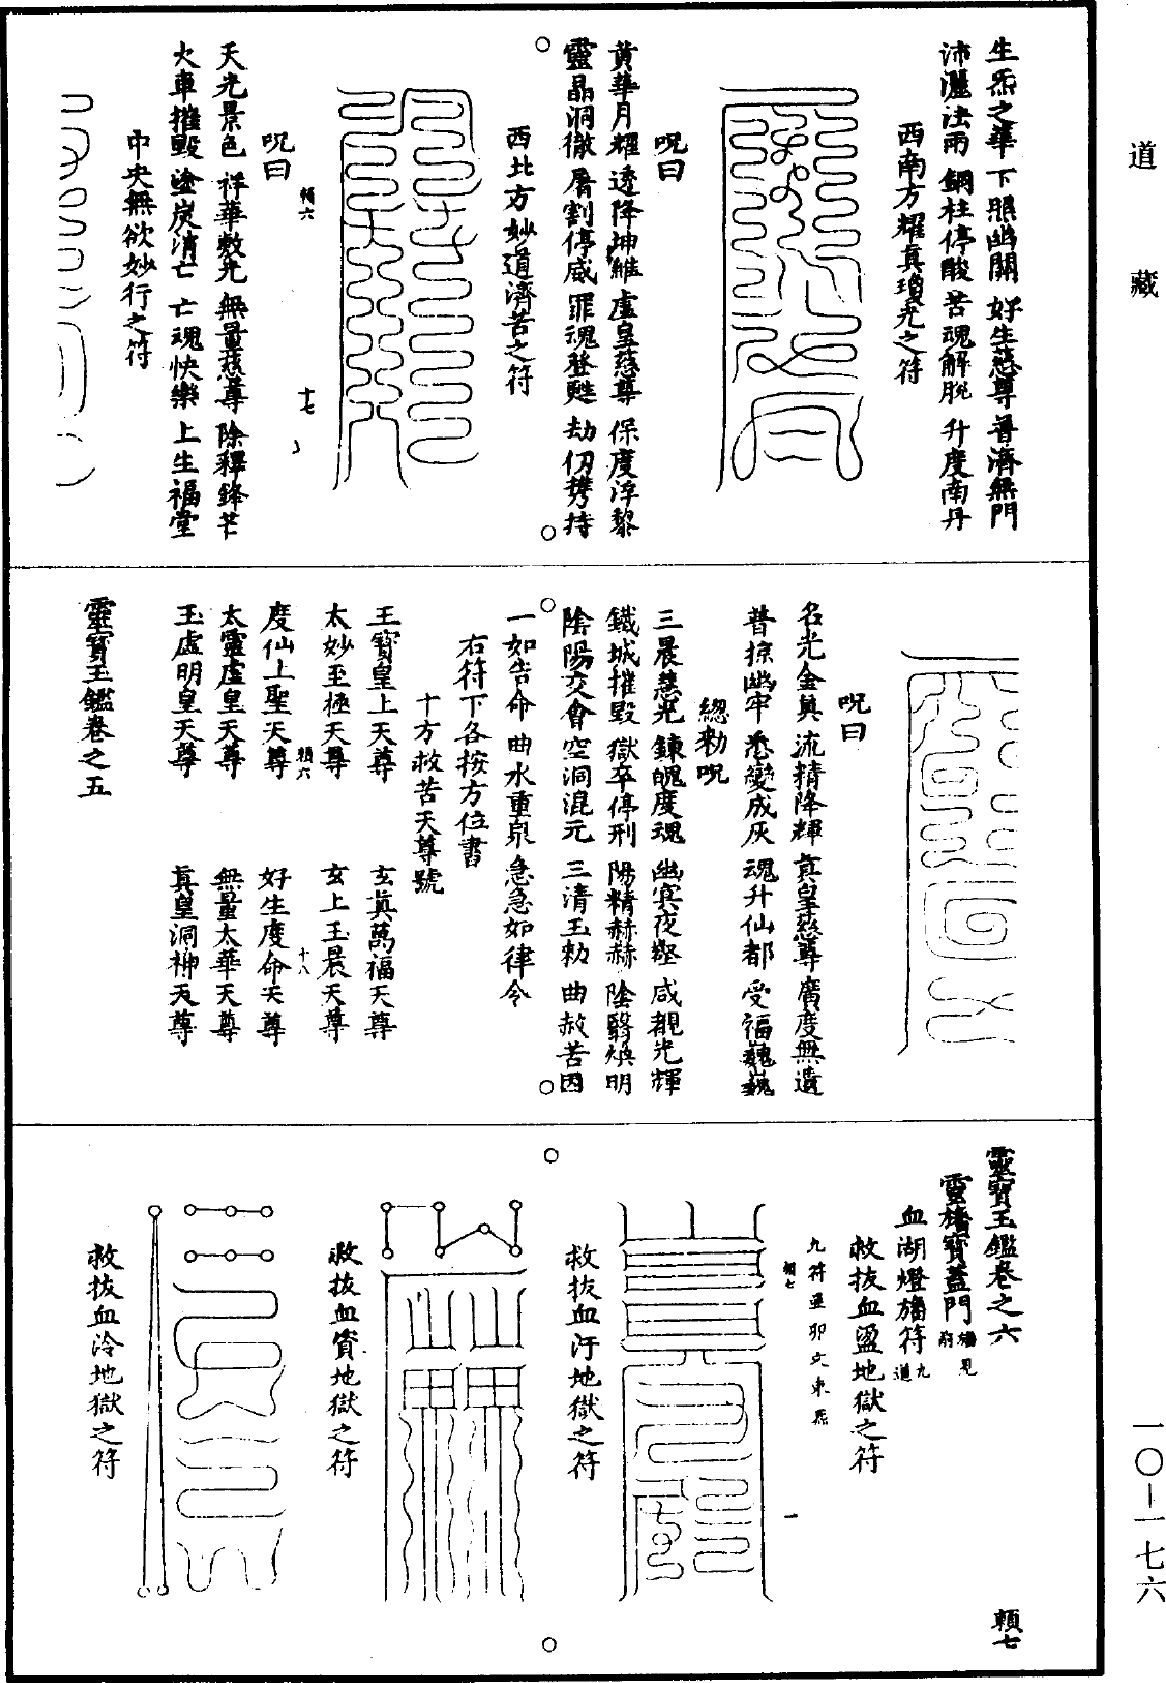 道藏
生炁之華 下照幽關 好生慈尊 普濟無門
沛灑法雨 銅柱停酸 苦魂解脫 升度南丹
西南方耀真瓊光之符
呪曰
黃華月耀 透降坤維 虛皇慈尊 保度浮黎
靈晶洞徹 屠割停威 罪魂登甦 劫仞携持
西北方妙道濟苦之符
頼六
十七
呪曰
天光景色 祥華敷光 無量慈尊 除釋鋒芒
火車摧毀 塗炭消亡 亡魂快樂 上生福堂
中央無欲妙行之符
呪曰
名光金真 流精降輝 真皇慈尊 廣度無遺
普掠幽牢 悉變成灰 魂升仙都 受福巍巍
總勑呪
三晨慧光 鍊魄度魂 幽冥夜壑 咸覩光輝
鐵城摧毀 獄卒停刑 陽精赫赫 陰翳煥明
陰陽交會 空洞混元 三清玉勑 曲赦苦囚
一如告命 曲水重泉 急急如律令
右符下各按方位書
十方救苦天尊號
玉寶皇上天尊 玄真萬福天尊
太妙至極天尊 玄上玉晨天尊
頼六
十八
度仙上聖天尊 好生度命天尊
太靈虛皇天尊 無量太華天尊
玉虛明皇天尊 真皇洞神天尊
靈寶玉鑑卷之五
靈寶玉鑑卷之六 頼七
靈旛寶蓋門 旛見前
血湖燈旛符 九道
救拔血盪地獄之符
九符並卯文東炁
頼七
一
救拔血汙地獄之符
救拔血資地獄之符
救拔血冷地獄之符
一〇—一七六